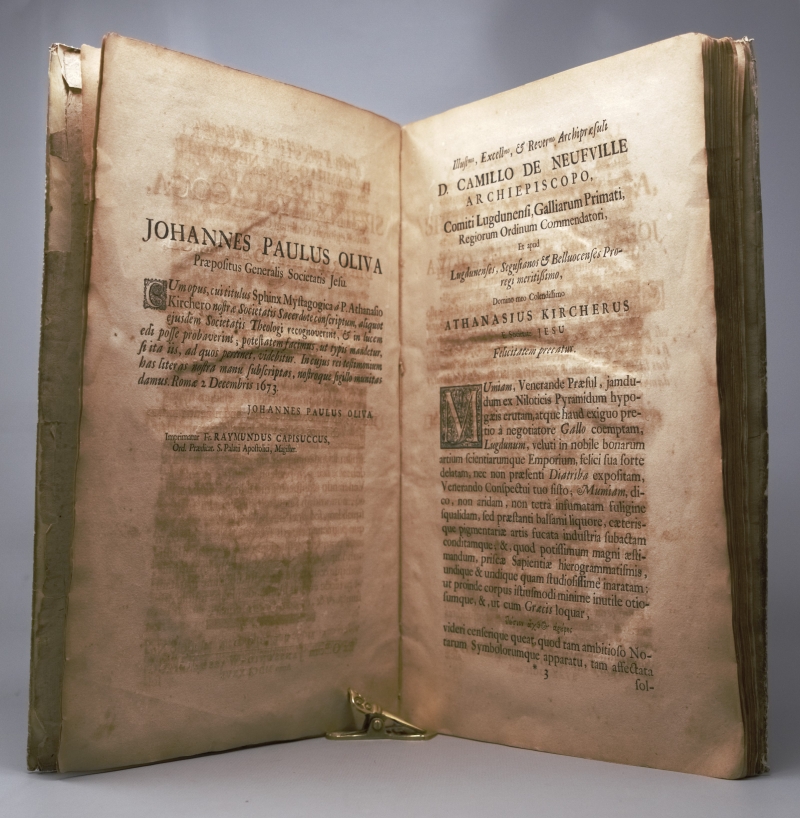 JOHANNES PAULUS OLIVA
Præpositus Generalis Societatis Jesu.
CUm opus, cui titulus Sphinx Mystagogica à P. Athanasio
Kirchero nostræ Societatis Sacerdote conscriptum, aliquot
ejusdem Societatis Theologi recognoverint, & in lucem
edi posse probaverint, potestatem facimus, ut typis mandetur,
si ita iis, ad quos pertinet, videbitur. In cujus rei testimonium
has literas nostra manu subscriptas, nostroque sigillo munitas
damus. Romæ 2 Decembris 1673.
JOHANNES PAULUS OLIVA.
Imprimatur Fr. RAYMUNDUS CAPISUCCUS,
Ord. Prædicat. S. Palatii Apostolici, Magister.
Illustmo, Excellmo, & Revermo Archipræsuli
D. CAMILLO DE NEUFVILLE
ARCHIEPISCOPO,
Comiti Lugdunensi, Galliarum Primati,
Regiorum Ordinum Commendatori,
Et apud
Lugdunenses, Segusianos & Bellovacenses Pro-
regi meritissimo,
Domino meo Colendissimo
ATHANASIUS KIRCHERUS
è Societate JESU
Felicitatem precatur.
MUmiam, Venerande Præsul, jamdu-
dum ex Niloticis Pyramidum hypo-
gæis erutam, atque haud exiguo pre-
tio à negotiatore Gallo coemptam,
Lugdunum, veluti in nobile bonarum
artium scientiarumque Emporium, felici sua sorte
delatam, nec non præsenti Diatriba expositam,
Venerando Conspectui tuo sisto; Mumiam, di-
co, non aridam, non tetrâ infumatam fuligine
squalidam, sed præstanti balsami liquore, cæteris-
que pigmentariæ artis fucata industria subactam
conditamque, &, quod potissimum magni æsti-
mandum, priscæ Sapientiæ hierogrammatismis,
undique & undique quam studiosissime inaratam:
ut proinde corpus istiusmodi minime inutile otio-
sumque, &, ut cum Græcis loquar,
videri censerique queat, quod tam ambitioso No-
tarum Symbolorumque apparatu, tam affectata
* 3
sol-